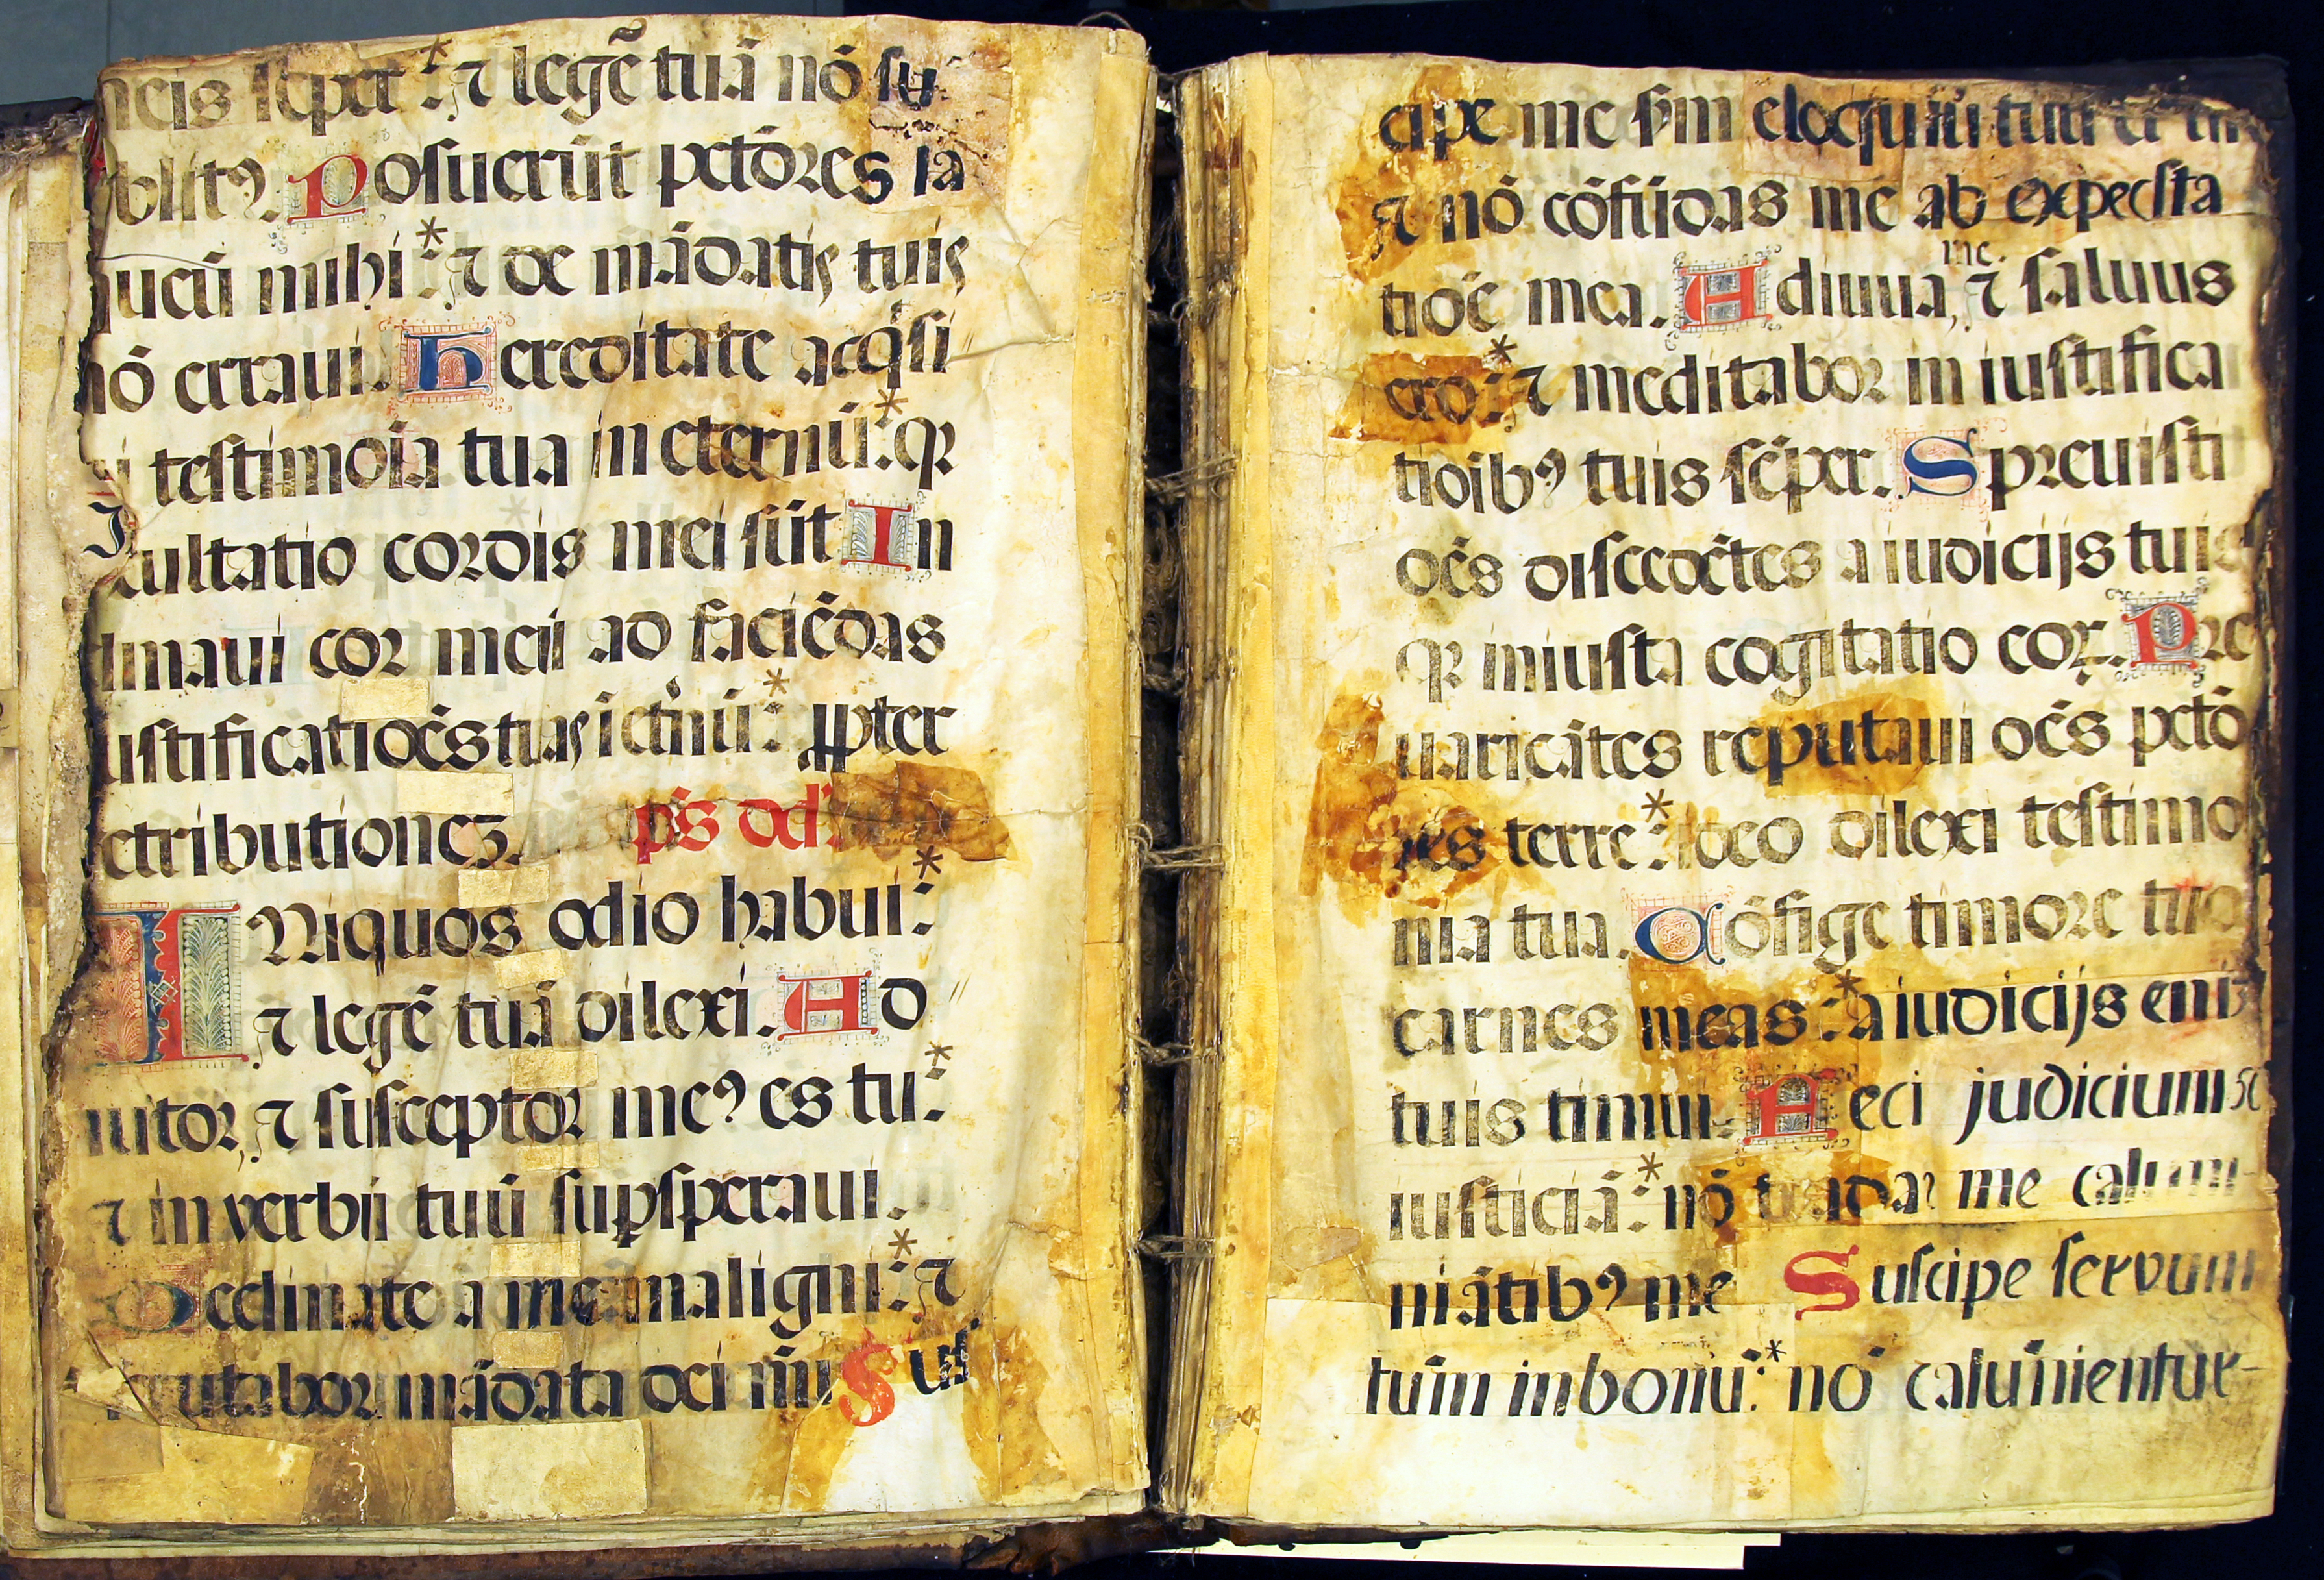 neis sēper : ⁊ legē tuā nō su
blit⁹. Posuerūt pctōres la
queū mihi : ⁊ de mādatis tuis
nō erraui. Hereditate acq̇si
ui testimoīa tua in eternū : qꝛ
exultatio cordis mei sūt In
clinaui cor meū ad faciēdas
iustificatiōēs tuas ī etnū : ꝓpter
retributionez. ps dd.
INiquos odio habui :
⁊ legē tuā dilexi. Ad
iutor, ⁊ susceptor me⁹ es tu :
⁊ in verbū tuū supsperaui.
Declinate a me maligni : ⁊
scrutabor mādata dei mī Sus
cipe me scm eloquiū tuū et
⁊ nō cōfūdas me ab expecsta
tiōē mea. Adiuua me, ⁊ saluus
ero : ⁊ meditabor in iustifica
tioib⁹ tuis sēper. Spreuisti
oēs discedētes a iudicijs tuis
qꝛ iniusta cogitatio coꝝ. Pre
uaricātes reputaui oēs pctō
res terre : ideo dilexi testimo
nia tua. Cōfige timore tuo
carnes meas : a iudicijs eni3
tuis timui. Feci judicium
iusticiā : nō tradas me calum
niātib⁹ me Suscipe servum
tuūm in bonū : nō calūnientur